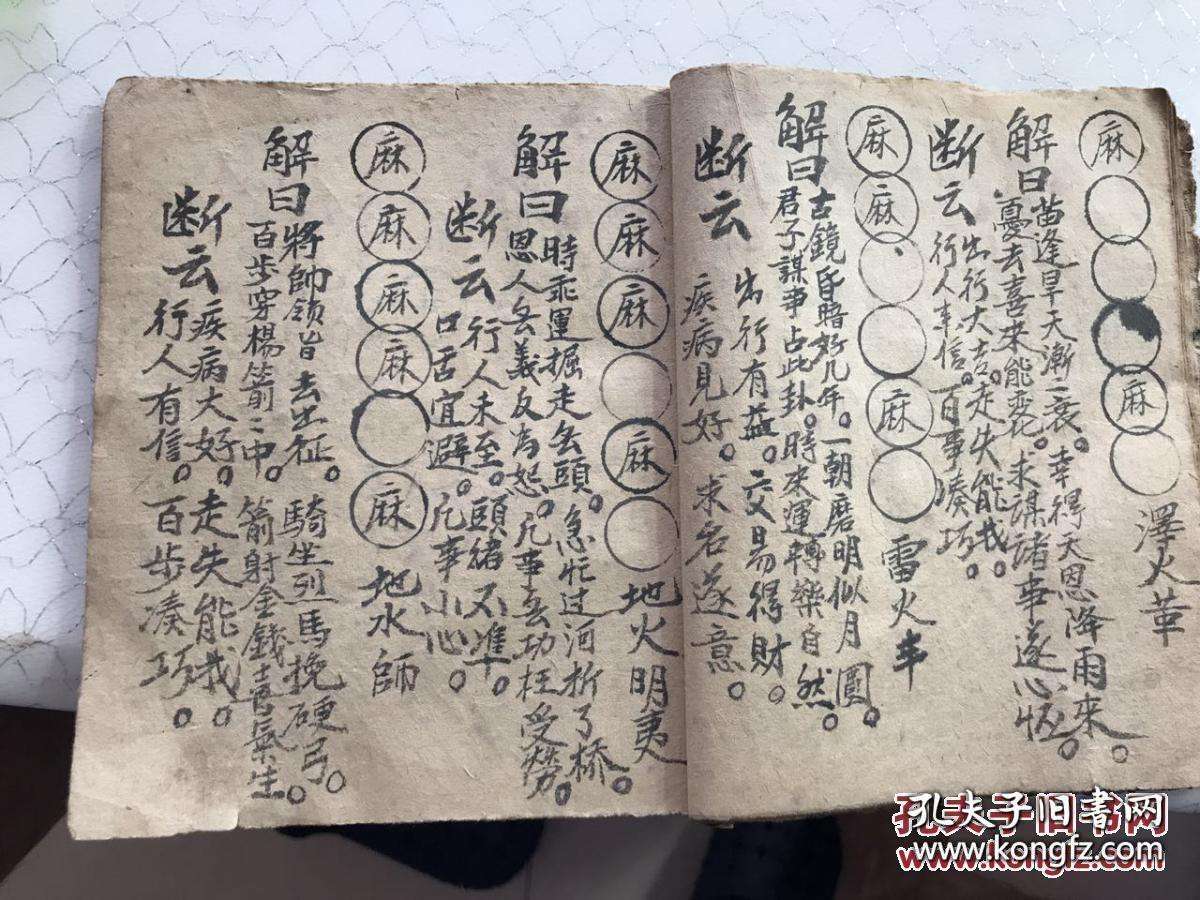 麻
麻
澤火革
解曰
苗逢旱天漸二衰。幸得天恩降雨來。
憂去喜來能变化。求謀諸事遂心怀。
断云
出行大吉。走失能我。
行人車信。百事凑巧。
麻麻
麻
雷火丰
解曰
古鏡昏暗好几年。一朝磨明似月圓。
君子謀事占此卦。時來運轉樂自然。
断云
出行有益。交易得財。
疾病見好。求名遂意。
麻麻麻
麻
地火明夷
解曰
時乖運掘走無頭。急忙过河折了桥。
恩人無義反為怨。凡事無功枉受勞。
断云
行人未至。頭緒不準。
口舌宜避。凡事小心。
麻麻麻麻
麻
地水師
解曰
將帥領旨去出征。騎坐烈馬挽硬弓。
百步穿楊箭二中。箭射金錢喜氣生。
断云
疾病大好。走失能我。
行人有信。百步凑巧。
孔夫子旧书网
www.kongfz.com